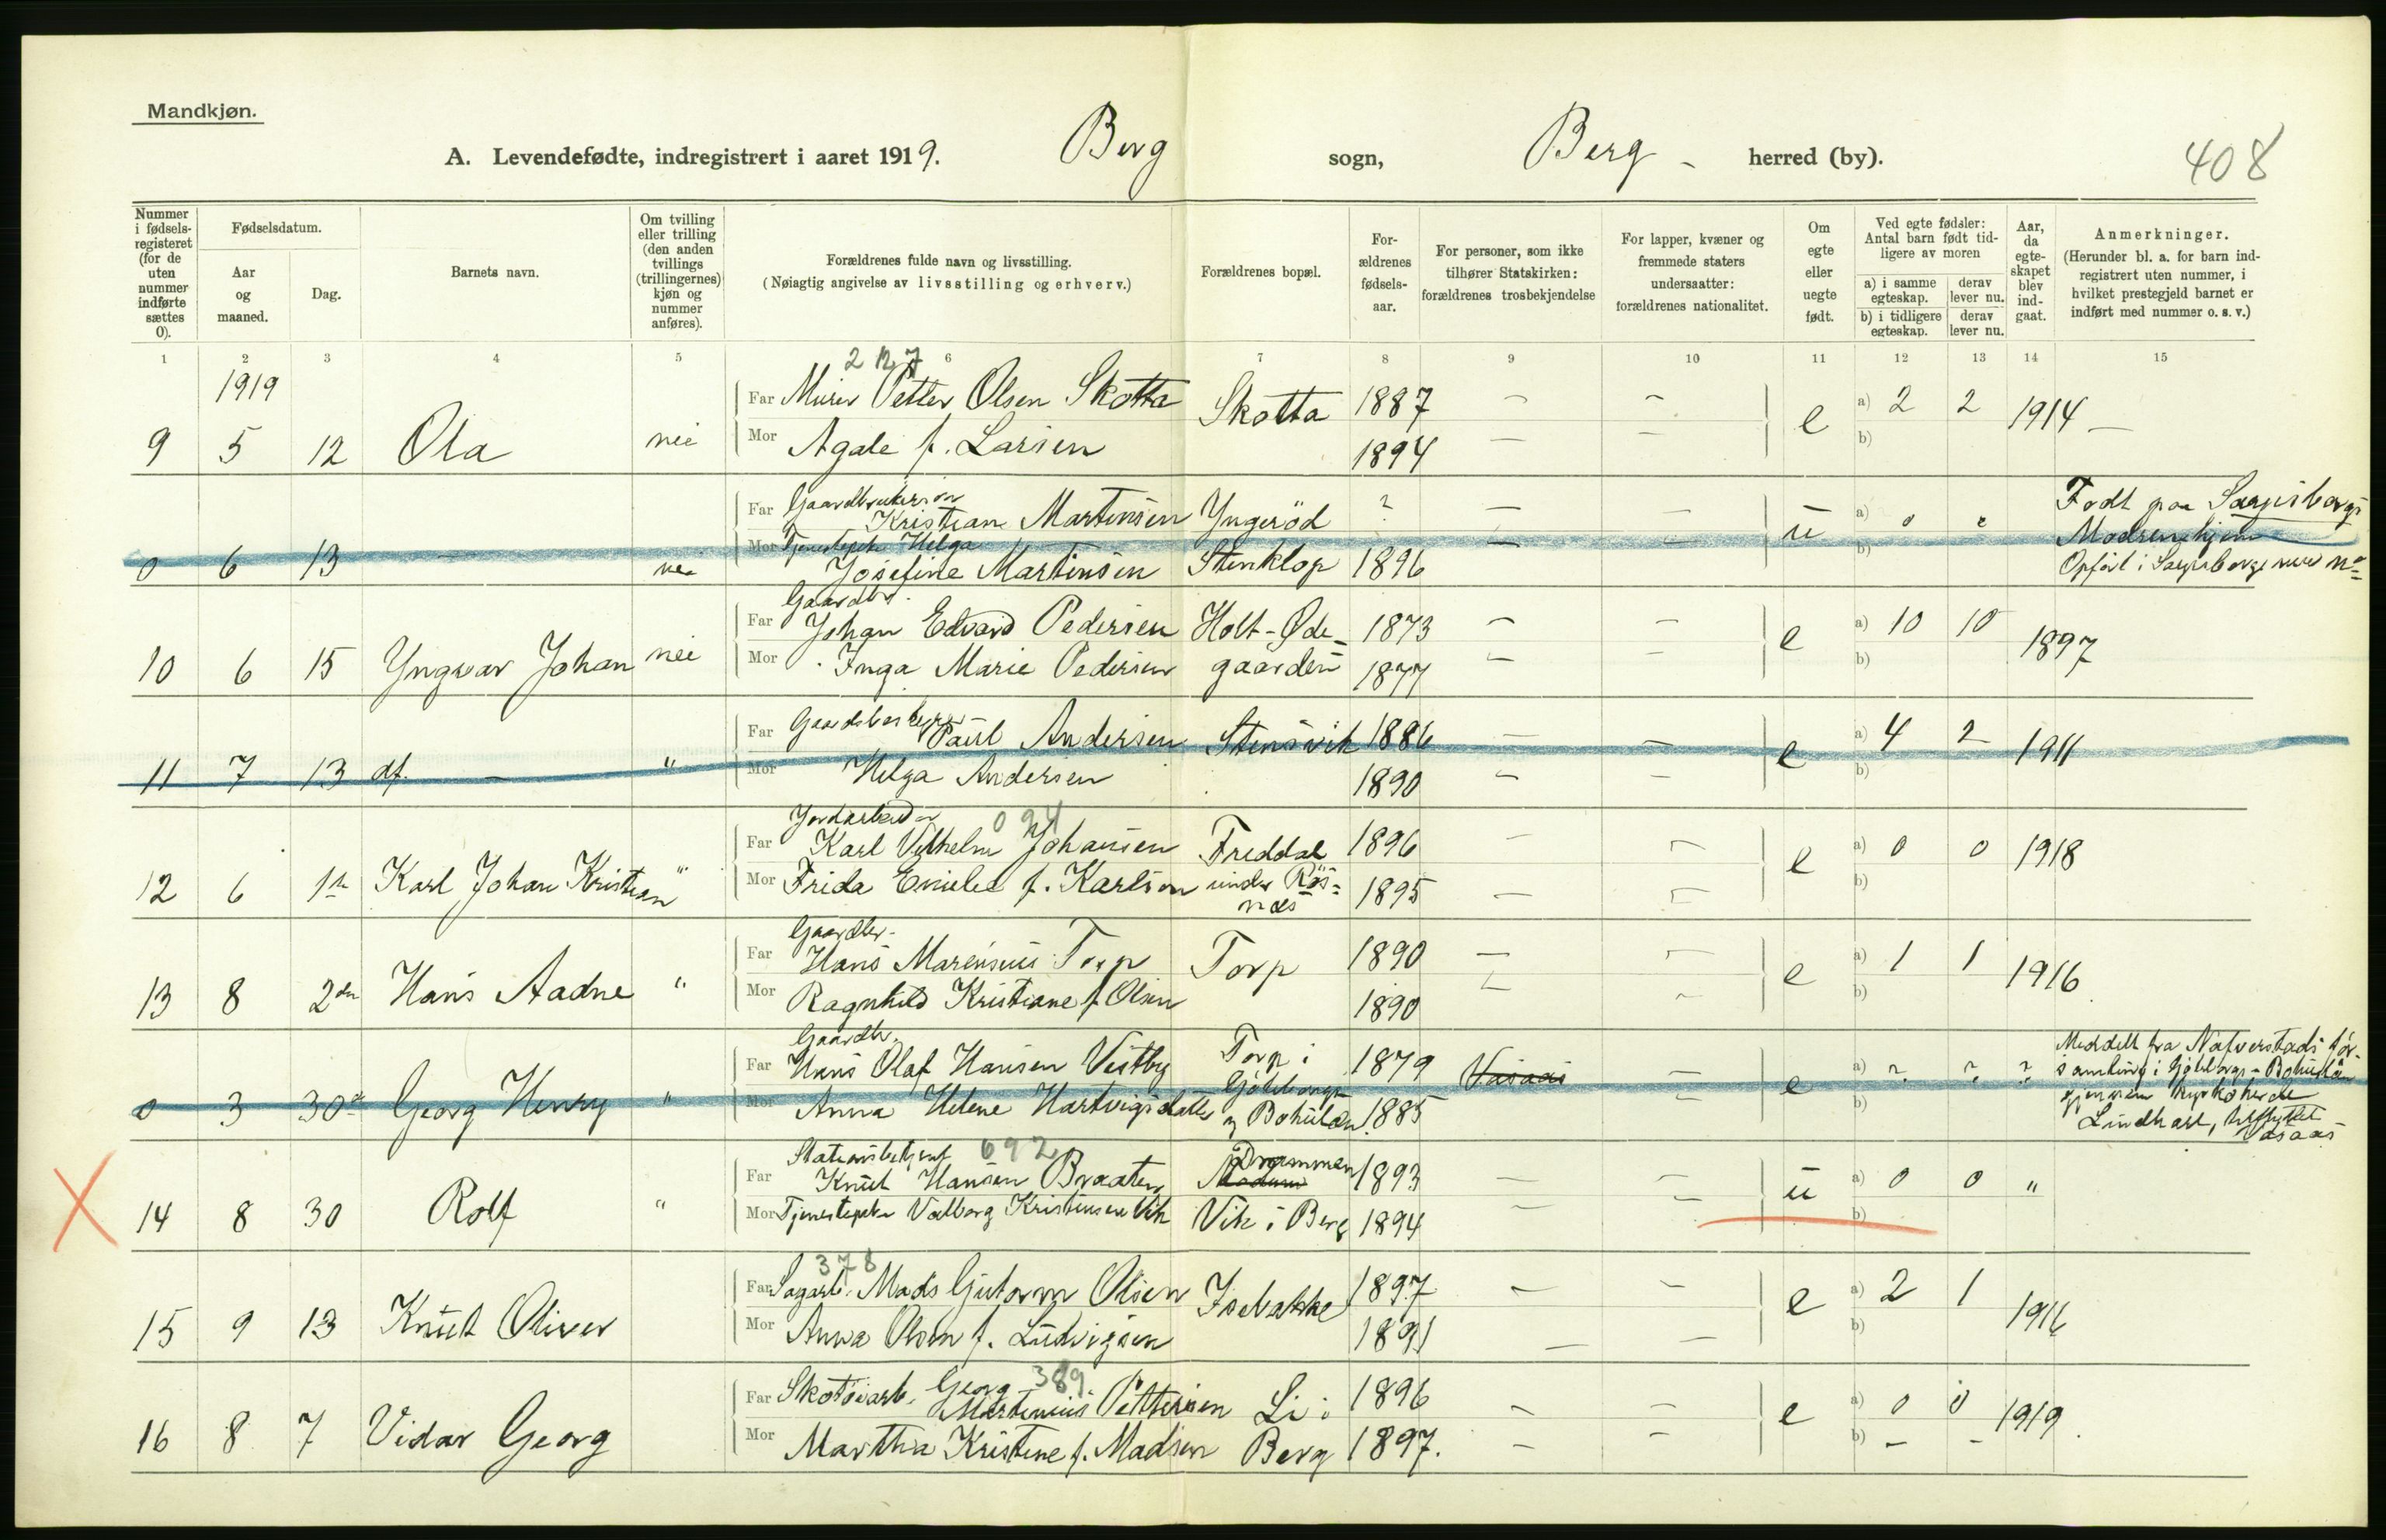 Mandkjøn.
A. Levendefødte, indregistrert i aaret 1919. Berg sogn, Berg - herred (by). 408
Nummer i fødselsregisteret (for de uten nummer indførte sættes 0).
Fødselsdatum.
Aar og maaned.
Dag.
Barnets navn.
Om tvilling eller trilling (den anden tvillings (trillingernes) kjøn og nummer anføres).
Forældrenes fulde navn og livsstilling.
(Nøiagtig angivelse av livsstilling og erhverv.)
Forældrenes bopæl.
Forældrenes fødselsaar.
For personer, som ikke tilhører Statskirken: forældrenes trosbekjendelse
For lapper, kvæner og fremmede staters undersaatter: forældrenes nationalitet.
Om egte eller uegte født.
Ved egte fødsler: Antal barn født tidligere av moren
a) i samme egteskap. derav lever nu.
b) i tidligere egteskap. derav lever nu.
Aar, da egteskapet blev indgaat.
Anmerkninger.
(Herunder bl. a. for barn indregistrert uten nummer, i hvilket prestegjeld barnet er indført med nummer o. s. v.)
1 2 3 4 5 6 7 8 9 10 11 12 13 14 15
1919
Far Murer Petter Olsen Skotta Skotta 1887 – – e a) 2 2 1914 –
9 5 12 Ola nei Mor Agate f. Larsen 1894 – – b)
Far Gaardbrukerson
Kristian Martinsen Yngerød ? – – u a) 0 0 Født paa Sarpsborgs
Mor Tjenestepike Helga – – b) Mødrenehjem
0 6 13 – nei Josefine Martinsen Stenklop 1896 Opført i Sarpsborg
Gaardbr.
Far Johan Edvard Pedersen Holt-Øde- 1873 – – e a) 10 10 1897
10 6 15 Yngvar Johan nei Mor Inga Marie Pedersen gaarden 1877 – – b)
Far Gaardsbestyrer Paul Andersen Stensvik 1886 – – e a) 4 2 1911
11 7 13 df. – " Mor Helga Andersen 1890 – – b)
Jordarbeider 094
Far Karl Vilhelm Johansen Freddal 1896 – – e a) 0 0 1918
12 6 1ste Karl Johan Kristian " Mor Frida Emilie f. Karlson under Røs- 1895 – – b)
næs
Gaardbr.
Far Hans Marensius Torp Torp 1890 – – e a) 1 1 1916
13 8 2den Hans Aadne " Mor Ragnhild Kristiane f. Olsen 1890 – – b)
Gaardbr.
Far Hans Olaf Hansen Vestby Torp i 1879 Vasaas – e a) ? ? ? Meddelt fra Nafverstads för-
samling i Göteborgs-Bohuslän
0 3 30te Georg Henry " Mor Anna Helene Hartvigsdatter Göteborgs
og Bohuslän 1885 b) gjennem kyrkoherde
Lindhart,
Vasaas
Stationsbetjent 692 Drammen
Far Knut Hansen Braaten Modum 1893 – – u a) 0 0 "
14 8 30 Rolf " Mor Tjenestepike Valborg Kristensen Vik Vik i Berg 1894 – – b)
378
Far Sagarb. Mads Gutorm Olsen Isebakke 1897 – – e a) 2 1 1916
15 9 13 Knut Oliver Mor Anna Olsen f. Ludvigsen 1891 – – b)
Far Skotøiarb. Georg 389
Martinius Pettersen Li i 1896 – – e a) 0 0 1919.
16 8 7 Vidar Georg Mor Martha Kristine f. Madsen Berg 1897. – – b) – –